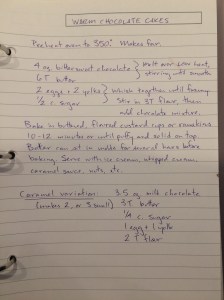 WARM CHOCOLATE CAKES
Preheat oven to 350° Makes four.
4 oz bittersweet chocolate
6T butter
melt over low heat, stirring until smooth
2 eggs + 2 yolks
1/2 c. sugar
Whisk together until foamy
Stir in 3T flour, then
add chocolate mixture.
Bake in buttered, floured custard cups or ramekins
10-12 minutes or until puffy and solid on top.
Batter can sit in molds for several hours before
baking. Serve with ice cream, whipped cream,
caramel sauce, nuts, etc.
Caramel variation: 3.5 oz milk chocolate
(makes 2, or 3 small) 3T butter
1/4 c. sugar
1 egg + 1 yolk
2 T flour